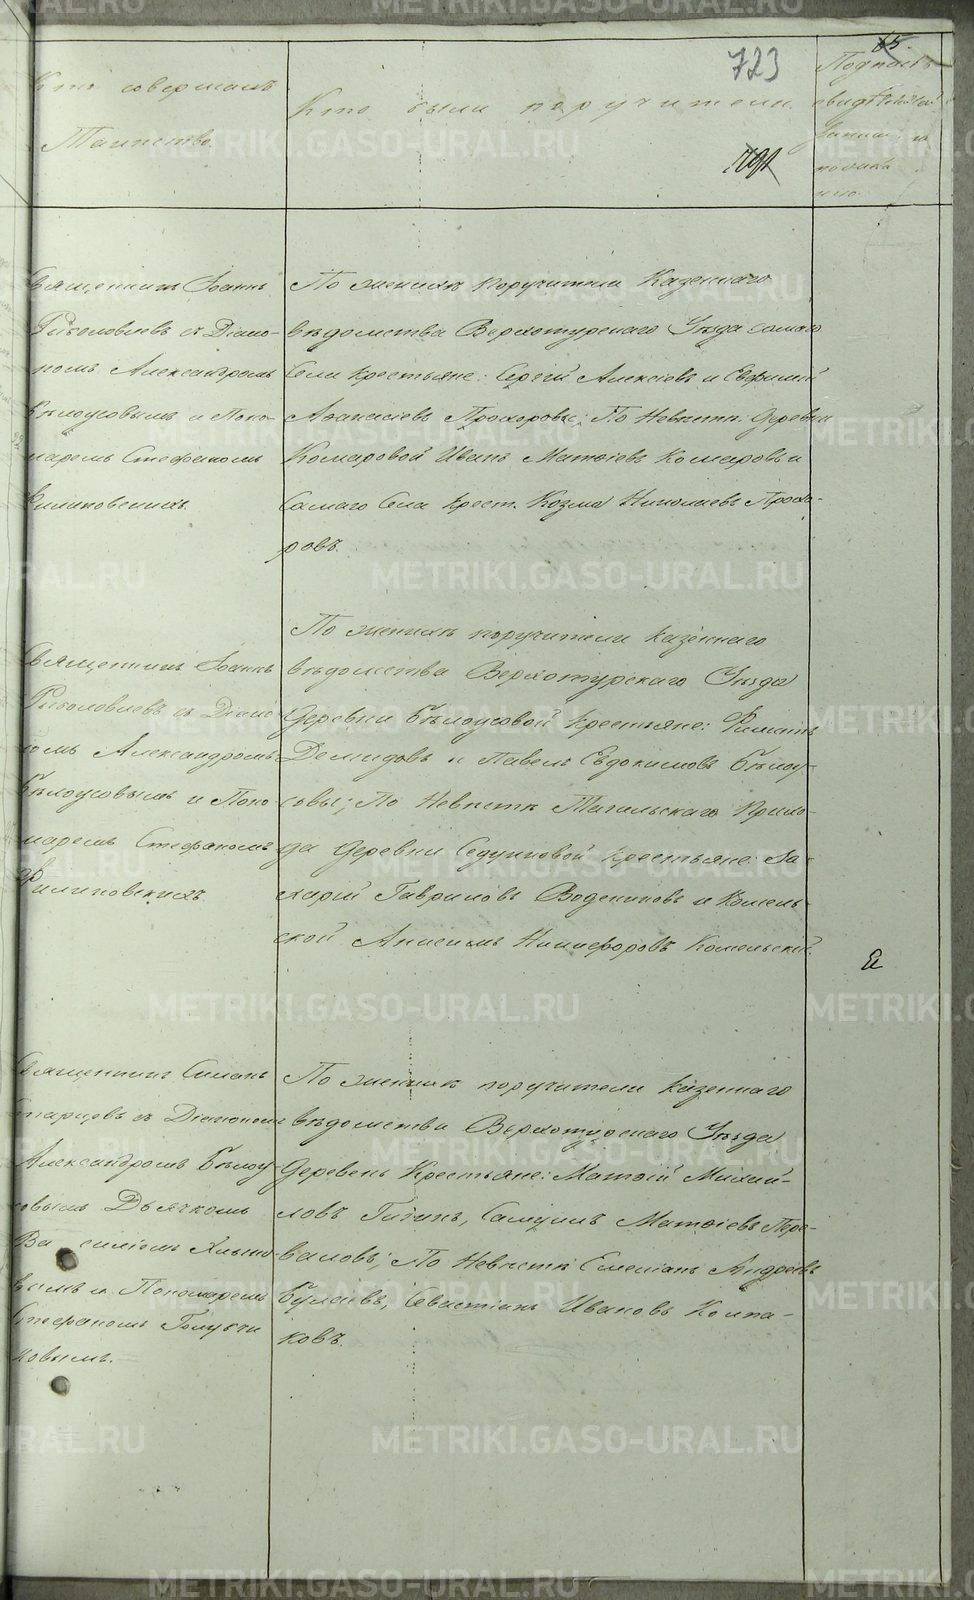 723
65.
Кто совершалъ
Таинство.
Кто были поручители.
Подпись
свидѣтелей
записи по
желанію
Священникъ Іоаннъ
Рыболовлевъ съ Діако-
номъ Александромъ
Бѣлоусовымъ и Поно-
маремъ Стефаномъ
Филиповскихъ.
По женихѣ поручители Казеннаго
вѣдомства Верхотурскаго Уѣзда самаго
Села крестьяне: Сергій Алексіевъ и Евфимій
Аѳанасіевъ Прохоровы; По Невѣстѣ Деревни
Комаровой Иванъ Матѳіевъ Комаровъ и
самаго Села крест. Козма Николаевъ Прохо-
ровъ.
Священникъ Іоаннъ
Рыболовлевъ съ Діако-
номъ Александромъ
Бѣлоусовымъ и Поно-
маремъ Стефаномъ
Филиповскихъ.
По женихѣ поручители казеннаго
вѣдомства Верхотурскаго Уѣзда
Деревни Бѣлоусовой крестьяне:
Демидовъ и Павелъ Евдокимовъ Бѣлоу-
совы; По Невѣстѣ Тагильскаго Прихо-
да Деревни Седуновой крестьяне: За-
харій Гавриловъ Воденниковъ и Комель-
ской Анисимъ Никифоровъ Комельскій.
Священникъ Симонъ
Старцовъ съ Діакономъ
Александромъ Бѣлоу-
совымъ Дьячкомъ
Василіемъ
вымъ и Пономаремъ
Стефаномъ Голубчи
ковымъ.
По женихѣ поручители казеннаго
вѣдомства Верхотурскаго Уѣзда
Деревень Крестьяне: Матѳій Михай-
ловъ Гигинъ, Самуилъ Матѳіевъ Пере-
валовъ; По Невѣстѣ Емеліанъ Андреевъ
Булаевъ, Севастіанъ Ивановъ Колпа-
ковъ.